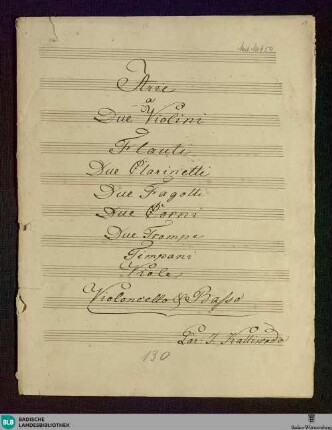 Arie
a
Due Violini
Flauti
Due Clarinetti
Due Fagotti
Due Corni
Due Trompe
Timpani
Viole
Violoncello & Basso
Par J. Kalliwoda
130
BLB
BADISCHE
LANDESBIBLIOTHEK
Baden-Württemberg